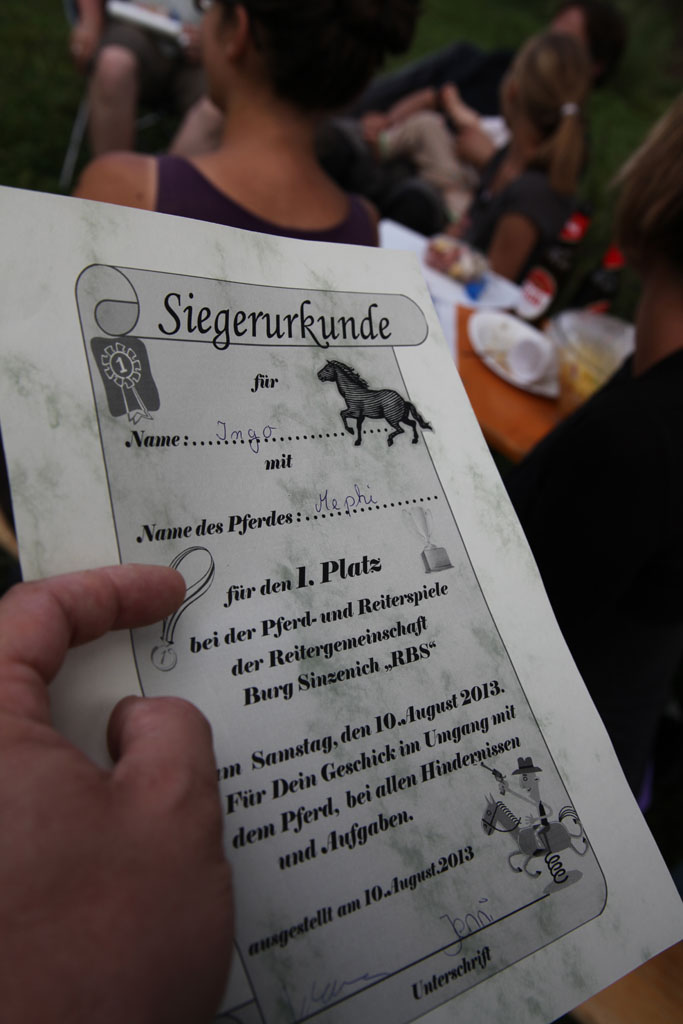 Siegerurkunde
1
für
Name: Ingo
mit
Name des Pferdes: Mephi
für den 1. Platz
bei der Pferd- und Reiterspiele
der Reitergemeinschaft
Burg Sinzenich „RBS“
Samstag, den 10. August 2013.
Für Dein Geschick im Umgang mit
dem Pferd, bei allen Hindernissen
und Aufgaben.
ausgestellt am 10. August.2013
Jenni
Unterschrift